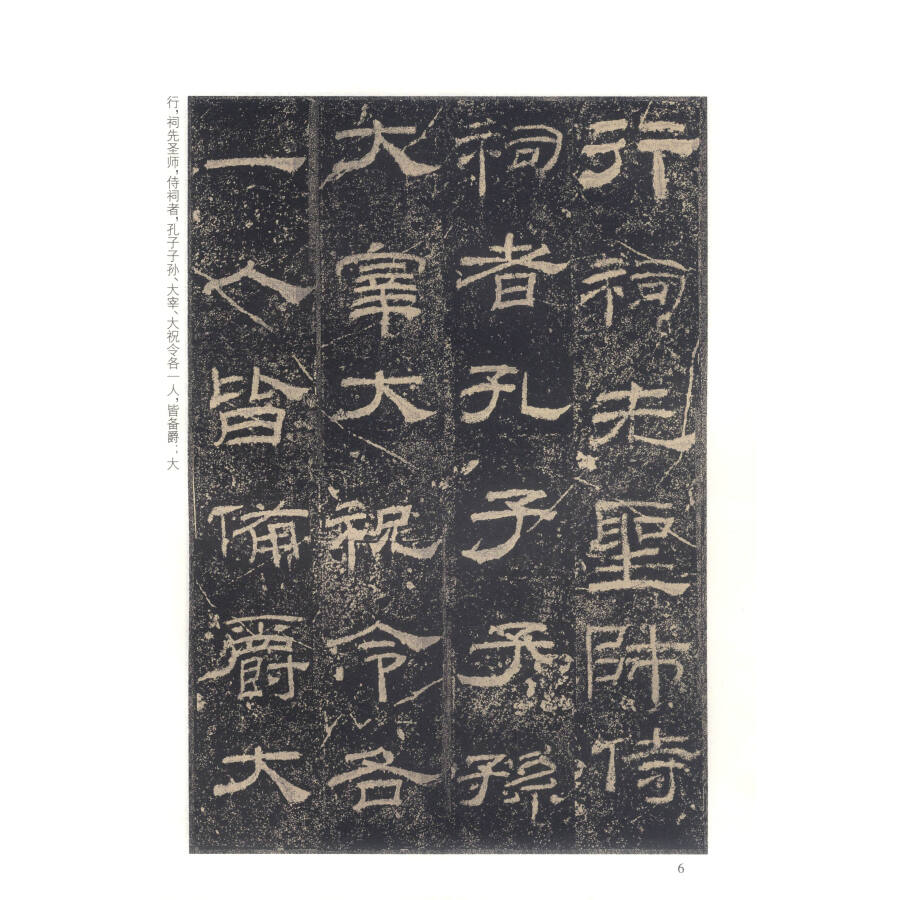 行祠先聖師侍
祠者孔子子孫
大宰大祝令各
一人皆備爵大
行，祠先圣师，侍祠者，孔子子孙、大宰、大祝令各一人，皆备爵；大
6